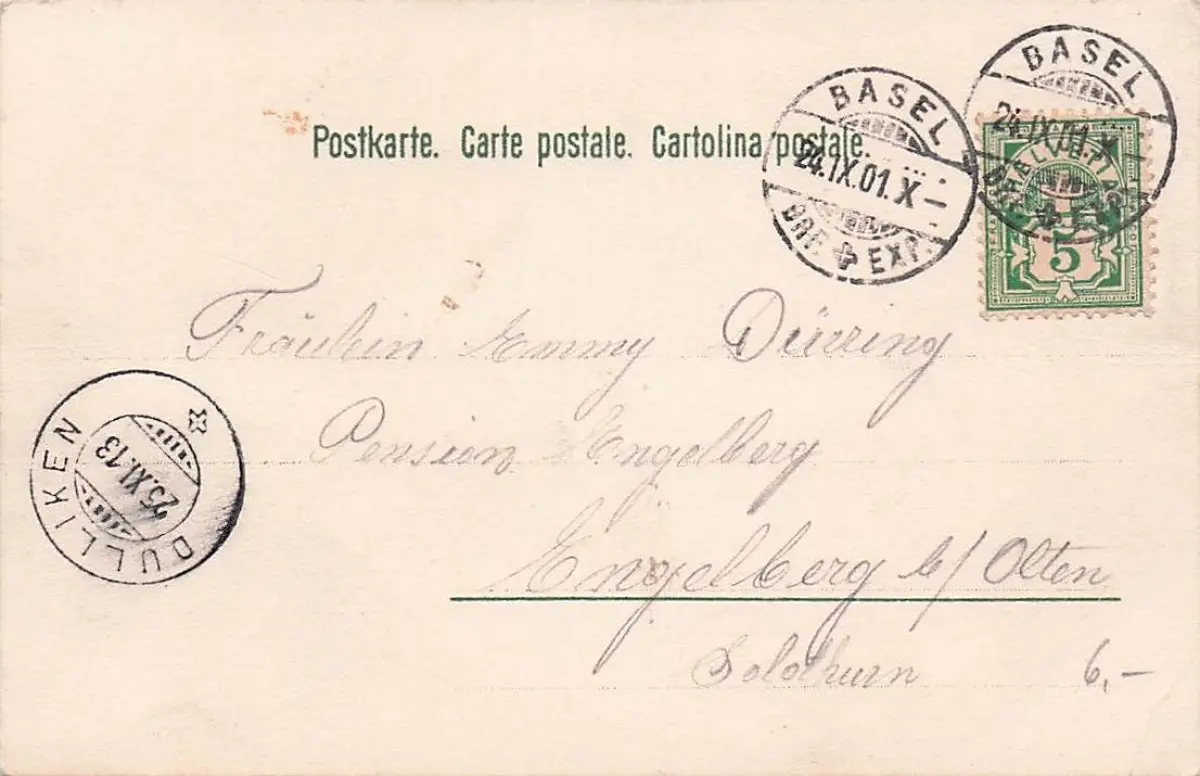 Postkarte. Carte postale. Cartolina postale.
BASEL
24.IX.01.X–
BRF. EXP.
BASEL
24.IX.01.X–
BRF. EXP.
HELVETIA
5
Fräulein Emmy Dürring
Pension Engelberg
Engelberg b/ Olten
Solothurn 6,–
DULLIKEN
25.XI.13